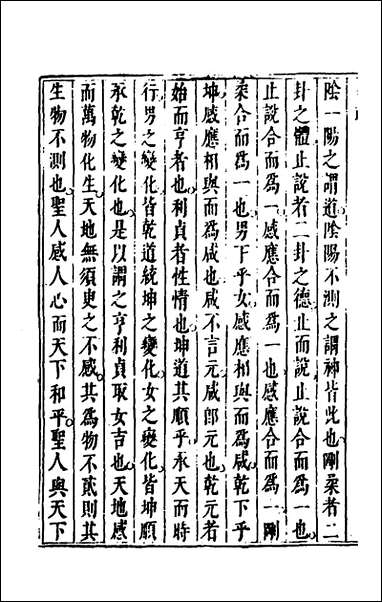 陰一陽之謂道陰陽不測之謂神皆此也剛柔者二
卦之體止說者二卦之德止而說止說合而爲一也
止說合而爲一感應合而爲一也感應合而爲一剛
柔合而爲一也男下乎女感應相與而爲咸乾下乎
坤感應相與而爲咸也咸不言元咸卽元也乾元者
始而亨者也利貞者性情也坤道其順乎承天而時
行男之變化皆乾道統坤之變化女之變化皆坤順
承乾之變化也是以謂之亨利貞取女吉也天地感
而萬物化生天地無須臾之不感其爲物不貳則其
生物不測也聖人感人心而天下和平聖人與天下